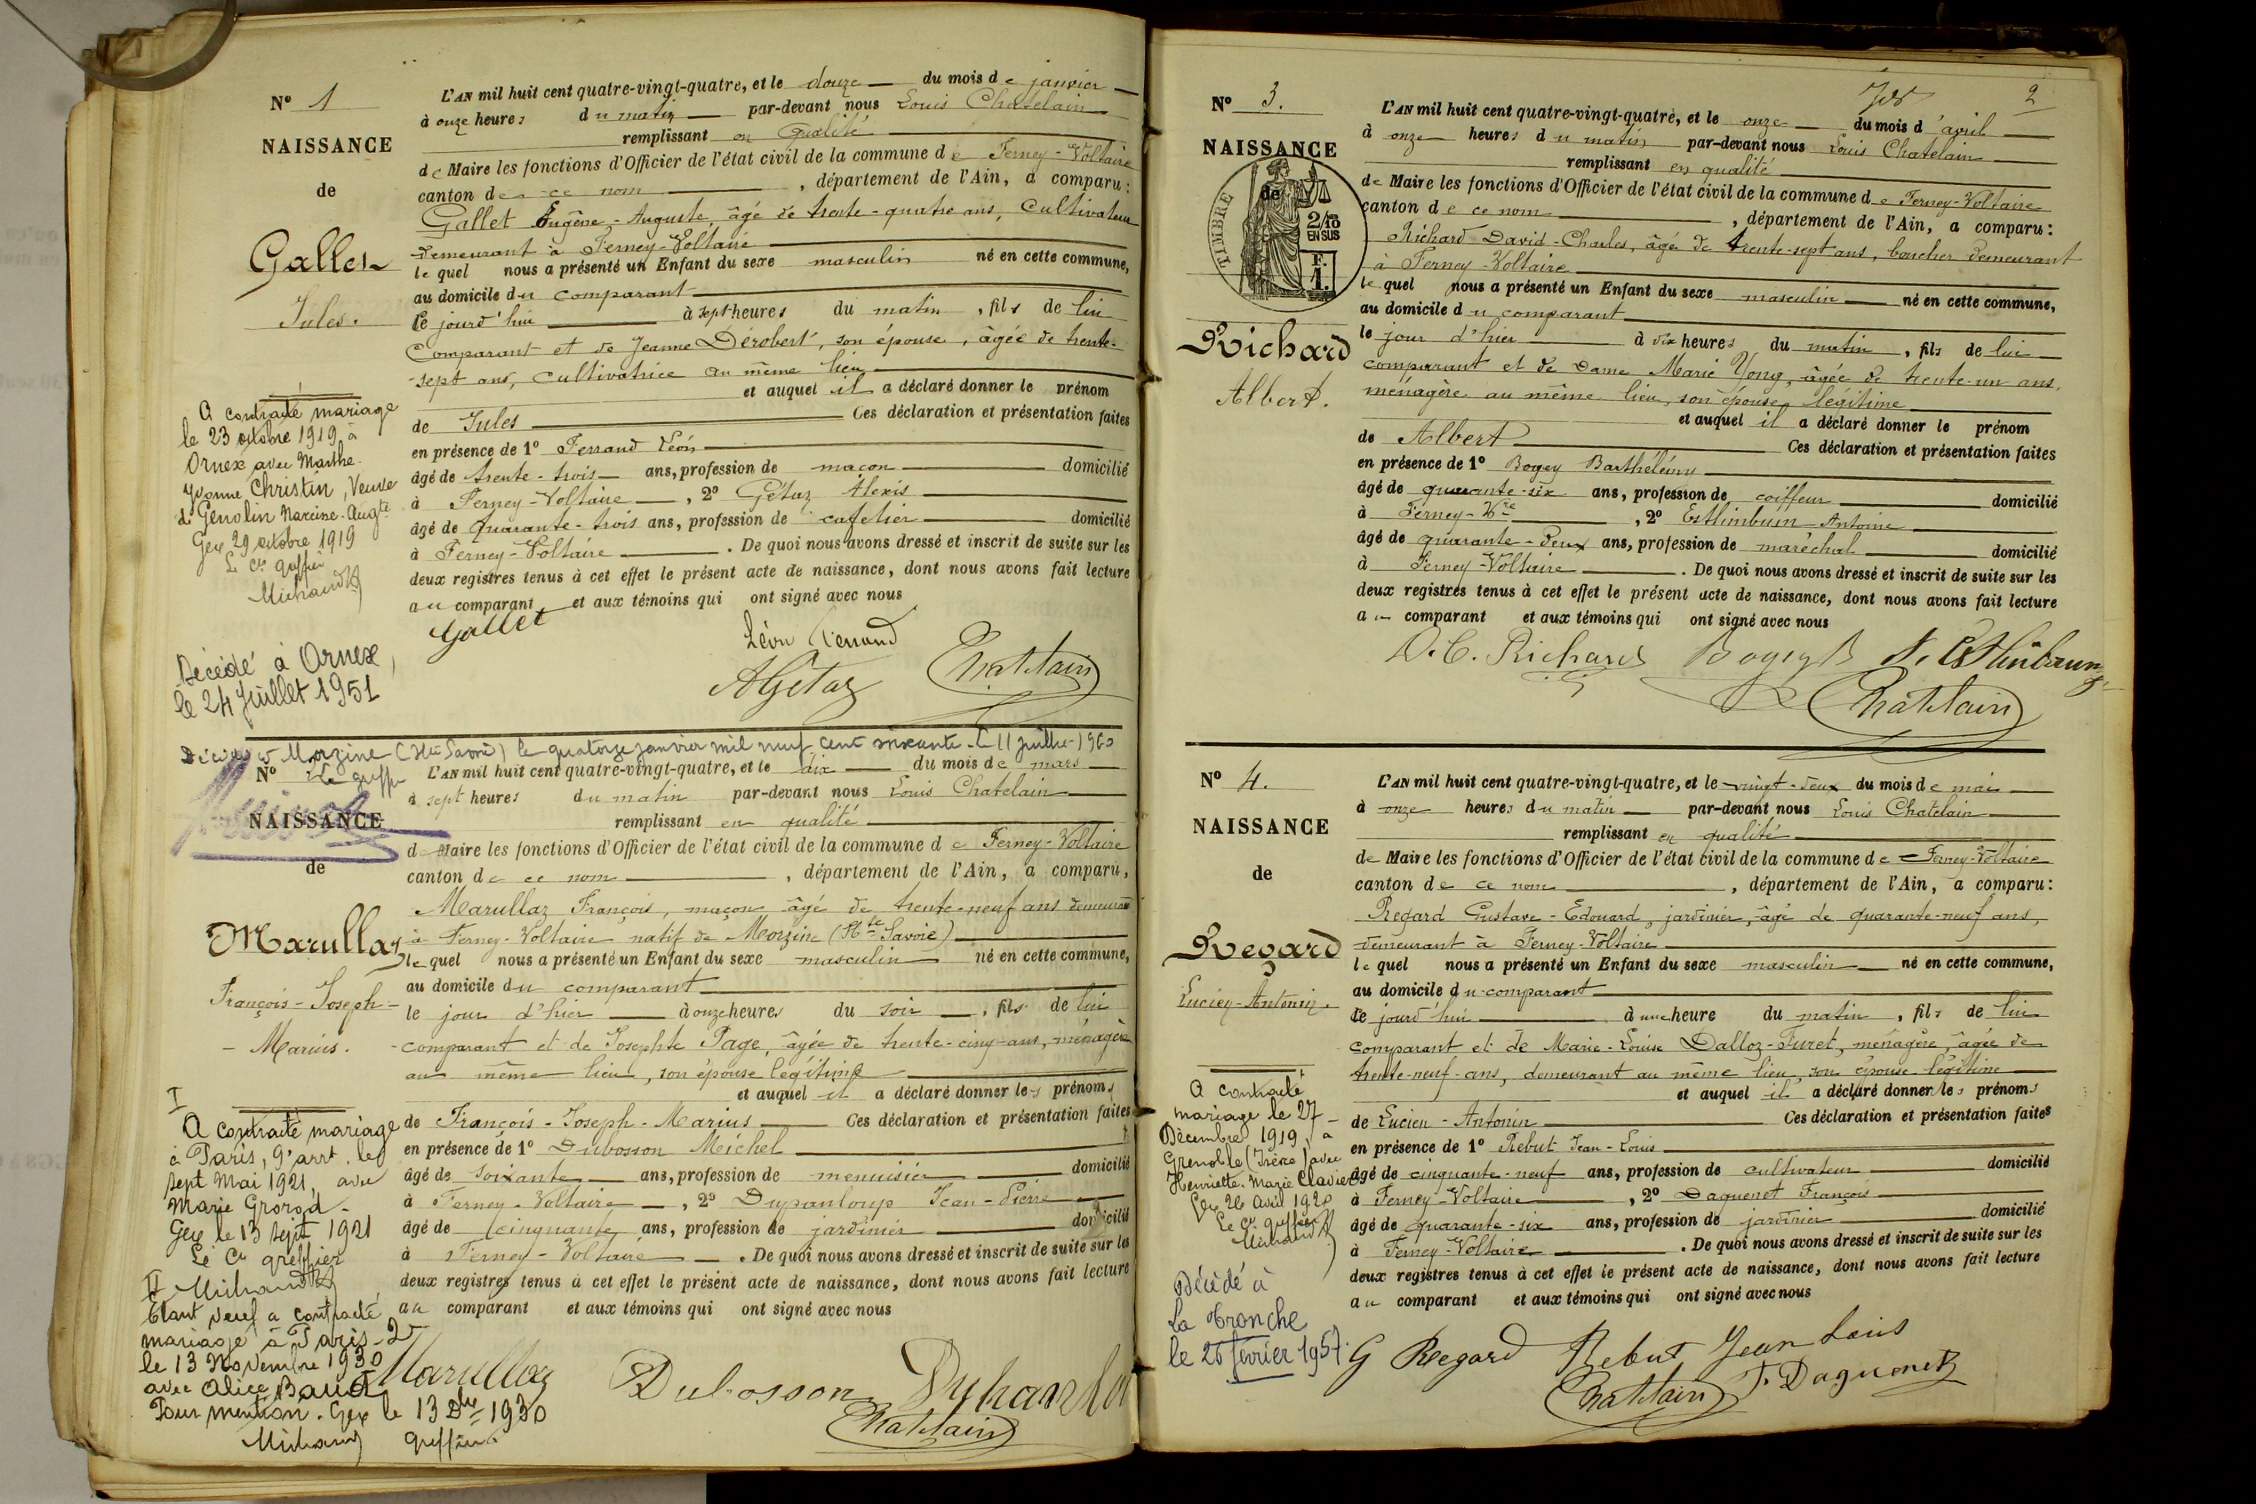 N° 1
NAISSANCE
de
Gallet
Jules.
L'AN mil huit cent quatre-vingt-quatre, et le douze du mois de janvier
à onze heures du matin par-devant nous Louis Chatelain
remplissant en qualité
de Maire les fonctions d'Officier de l'état civil de la commune de Ferney-Voltaire
canton de ce nom, département de l'Ain, a comparu :
Gallet Eugène-Auguste, âgé de trente-quatre ans, Cultivateur
demeurant à Ferney-Voltaire
lequel nous a présenté un Enfant du sexe masculin né en cette commune,
au domicile du comparant
le jourd'hui à sept heures du matin, fils de lui
comparant et de Jeanne Dérobert, son épouse, âgée de trente-
sept ans, cultivatrice au même lieu
et auquel il a déclaré donner le prénom
de Jules Ces déclaration et présentation faites
en présence de 1° Ferrand Léon
âgé de trente-trois ans, profession de maçon domicilié
à Ferney-Voltaire, 2° Gétaz Alexis
âgé de quarante-trois ans, profession de cafetier domicilié
à Ferney-Voltaire. De quoi nous avons dressé et inscrit de suite sur les
deux registres tenus à cet effet le présent acte de naissance, dont nous avons fait lecture
au comparant et aux témoins qui ont signé avec nous
Gallet Léon Ferrand
AGétaz Chatelain
A contracté mariage
le 23 octobre 1919 à
Ornex avec Marthe
Yvonne Christin, Veuve
de Genolin Narcisse-Augte
Gex 29 octobre 1919
Le Cis greffier
Michaud
Décédé à Ornex,
le 24 Juillet 1951
Décédé à Morzine (Hte Savoie) le quatorze janvier mil neuf cent soixante. Le 11 juillet 1960
Le greffier
N°
NAISSANCE
de
Marullaz
François-Joseph-
-Marius.
L'AN mil huit cent quatre-vingt-quatre, et le dix du mois de mars
à sept heures du matin par-devant nous Louis Chatelain
remplissant en qualité
de Maire les fonctions d'Officier de l'état civil de la commune de Ferney-Voltaire
canton de ce nom, département de l'Ain, a comparu,
Marullaz François, maçon âgé de trente-neuf ans demeurant
à Ferney-Voltaire natif de Morzine (Hte Savoie)
lequel nous a présenté un Enfant du sexe masculin né en cette commune,
au domicile du comparant
le jour d'hier à onze heures du soir, fils de lui
comparant et de Josephte Page, âgée de trente-cinq-ans, ménagère
au même lieu, son épouse légitime
et auquel il a déclaré donner les prénoms
de François-Joseph-Marius Ces déclaration et présentation faites
en présence de 1° Dubosson Michel
âgé de soixante ans, profession de menuisier domicilié
à Ferney-Voltaire, 2° Dupanloup Jean-Pierre
âgé de cinquante ans, profession de jardinier domicilié
à Ferney-Voltaire. De quoi nous avons dressé et inscrit de suite sur les
deux registres tenus à cet effet le présent acte de naissance, dont nous avons fait lecture
au comparant et aux témoins qui ont signé avec nous
Marullaz Dubosson
Chatelain
I
A contracté mariage
à Paris, 9e arrt. le
sept Mai 1921, avec
Marie Grorod-
Gex le 13 Sept 1921
Le Cis greffier
II Michaud
Etant veuf a contracté
mariage à Paris-2e
le 13 Novembre 1930
avec Alice Baud
Pour mention. Gex le 13 Dbre 1930
Michaud greffier
2
N° 3.
NAISSANCE
de
TIMBRE
2/10
EN SUS
F.
1.
Richard
Albert.
L'AN mil huit cent quatre-vingt-quatre, et le onze du mois d'avril
à onze heures du matin par-devant nous Louis Chatelain
remplissant en qualité
de Maire les fonctions d'Officier de l'état civil de la commune de Ferney-Voltaire
canton de ce nom, département de l'Ain, a comparu :
Richard David-Charles, âgé de trente-sept ans, boucher demeurant
à Ferney-Voltaire
lequel nous a présenté un Enfant du sexe masculin né en cette commune,
au domicile du comparant
le jour d'hier à dix heures du matin, fils de lui
comparant et de Dame Marie Yong, âgée de trente-un ans,
ménagère au même lieu, son épouse légitime
et auquel il a déclaré donner le prénom
de Albert Ces déclaration et présentation faites
en présence de 1° Bogey Barthélémy
âgé de quarante-six ans, profession de coiffeur domicilié
à Ferney-Vre, 2° Esthimbum Antoine
âgé de quarante-deux ans, profession de maréchal domicilié
à Ferney-Voltaire. De quoi nous avons dressé et inscrit de suite sur les
deux registres tenus à cet effet le présent acte de naissance, dont nous avons fait lecture
au comparant et aux témoins qui ont signé avec nous
D. C. Richard Bogey B
Chatelain
N° 4.
NAISSANCE
de
Regard
Lucien-Antonin.
L'AN mil huit cent quatre-vingt-quatre, et le vingt-deux du mois de mai
à onze heures du matin par-devant nous Louis Chatelain
remplissant en qualité
de Maire les fonctions d'Officier de l'état civil de la commune de Ferney-Voltaire
canton de ce nom, département de l'Ain, a comparu :
Regard Gustave-Edouard, jardinier, âgé de quarante-neuf ans,
demeurant à Ferney-Voltaire
lequel nous a présenté un Enfant du sexe masculin né en cette commune,
au domicile du comparant
le jourd'hui à une heure du matin, fils de lui
comparant et de Marie-Louise Dalloz-Furet, ménagère, âgée de
trente-neuf-ans, demeurant au même lieu, son épouse légitime
et auquel il a déclaré donner les prénoms
de Lucien-Antonin Ces déclaration et présentation faites
en présence de 1° Rebut Jean-Louis
âgé de cinquante-neuf ans, profession de cultivateur domicilié
à Ferney-Voltaire, 2° Daguenet François
âgé de quarante-six ans, profession de jardinier domicilié
à Ferney-Voltaire. De quoi nous avons dressé et inscrit de suite sur les
deux registres tenus à cet effet le présent acte de naissance, dont nous avons fait lecture
au comparant et aux témoins qui ont signé avec nous
G Regard Rebut Jean Louis
Chatelain F. Daguenet
A contracté
mariage le 27
Décembre 1919, à
Grenoble (Isère) avec
Henriette-Marie Clavier
Gex 26 Avril 1920
Le Cis greffier
Michaud
Décédé à
La Tronche
le 26 février 1957.